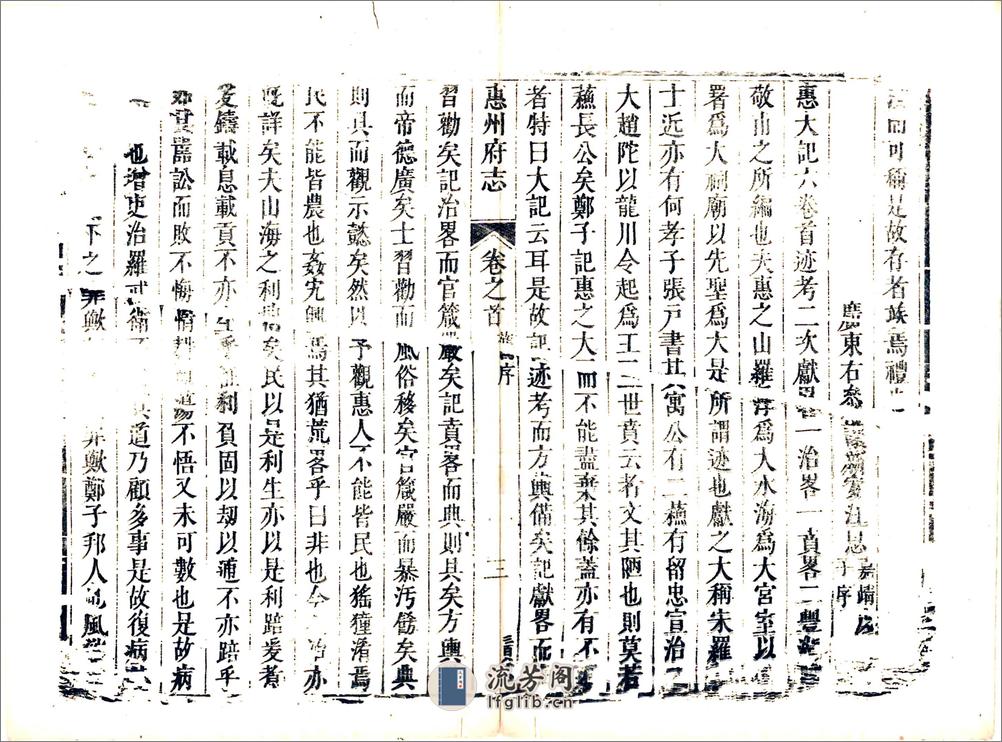 而可稱是故存者㷟焉禮
廣東右叅 嘉靖 序
惠大記六卷首迹考二次獻畧一治畧一賁畧二豐
敬山之所編也夫惠之山羅浮爲大水海爲大宮室以
署爲大祠廟以先聖爲大是所謂迹也獻之大稱朱羅
士近亦有何孝子張戸書其大寓公有二蘇有留忠宣治之
大趙陀以龍川令起爲王二世賁云者文其陋也則莫若
蘇長公矣鄭子記惠之大而不能盡棄其餘蓋亦有不
者特曰大記云耳是故記迹考而方輿備矣記獻畧而
惠州府志 卷之首 舊序 三
習勸矣記治畧而官箴嚴矣記賁畧而典則具矣方輿
而帝德廣矣士習勸而風俗移矣官箴嚴而暴汚儆矣典
則具而觀示懿矣然以予觀惠人不能皆民也猺獞淆焉
民不能皆農也姦宄興焉其猶荒畧乎曰非也今 亦
旣詳矣夫山海之利 矣民以是利生亦以是利踣爰者
爰鑄載息載頁不亦生乎 利負固以刼以遁不亦踣乎
嚚訟而敗不悔 不悟又未可數也是故病
也增吏治羅 衛 道乃顧多事是故復病
下之弊歟 弊歟鄭子邦人也風
流芳阁
lfglib.cn